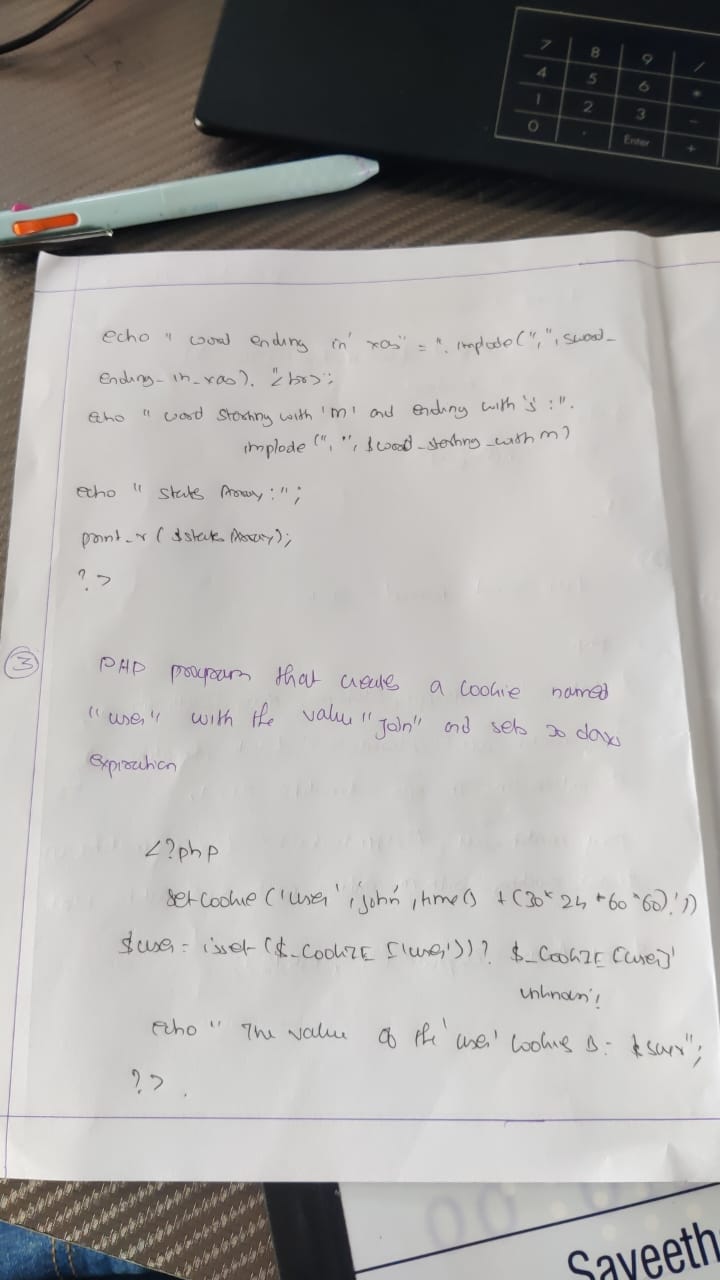 7 8 9 /
4 5 6 *
1 2 3 -
0 . Enter +
echo " word ending in' xas" = ". implode(",", $word_
ending_in_xas). "<br>";
echo " word starting with 'm' and ending with 's' :".
implode (", ", $word_starting_with m)
echo " states Array :";
print_r ( $states Array);
?>
3
PHP program that creates a cookie named
"user" with the value "John" and sets 30 days
expiration
<?php
setcookie ('user' , 'john' , time() + (30* 24 *60 *60).'/)
$user = isset ($_COOKIE ['user'])) ? $_COOKIE [user]'
unknown'!
echo " The value of the 'user' cookie is :- $suer";
?> .
Saveeth